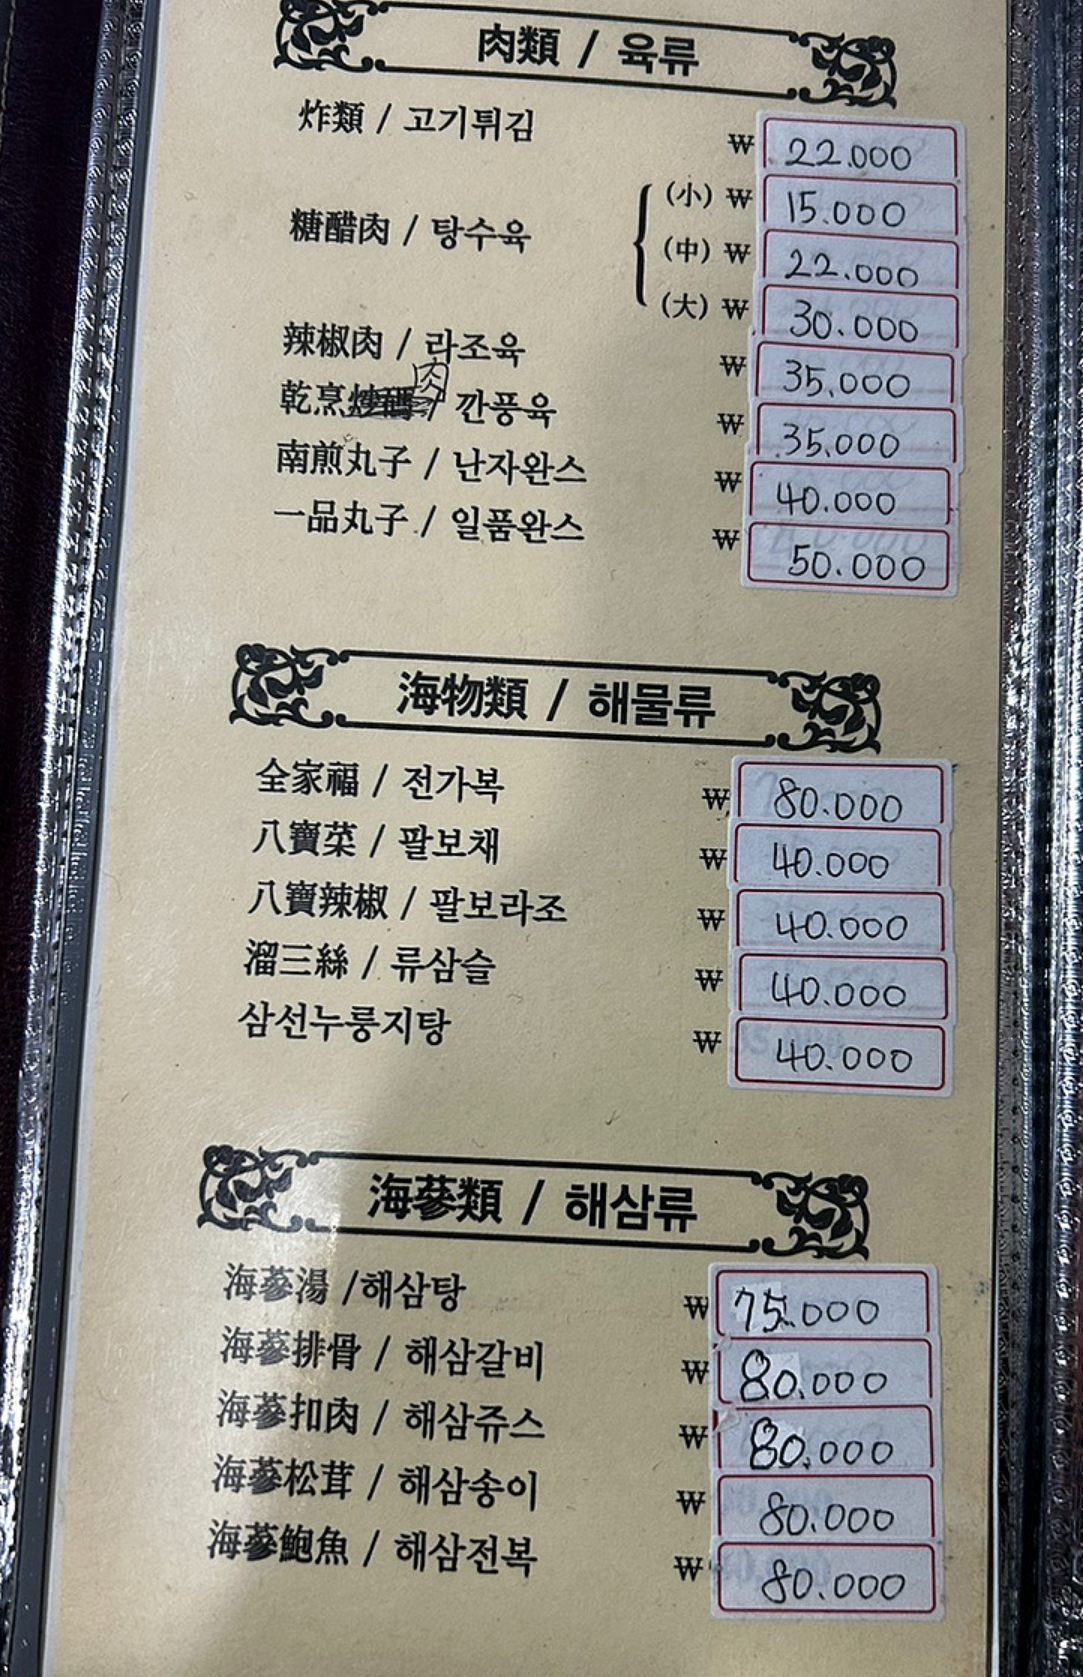 肉類 / 육류
炸類 / 고기튀김 ₩ 22.000
糖醋肉 / 탕수육 (小) ₩ 15.000
(中) ₩ 22.000
(大) ₩ 30.000
辣椒肉 / 라조육 ₩ 35.000
乾烹肉 / 깐풍육 ₩ 35.000
南煎丸子 / 난자완스 ₩ 40.000
一品丸子 / 일품완스 ₩ 50.000
海物類 / 해물류
全家福 / 전가복 ₩ 80.000
八寶菜 / 팔보채 ₩ 40.000
八寶辣椒 / 팔보라조 ₩ 40.000
溜三絲 / 류삼슬 ₩ 40.000
삼선누룽지탕 ₩ 40.000
海蔘類 / 해삼류
海蔘湯 /해삼탕 ₩ 75.000
海蔘排骨 / 해삼갈비 ₩ 80.000
海蔘扣肉 / 해삼쥬스 ₩ 80.000
海蔘松茸 / 해삼송이 ₩ 80.000
海蔘鮑魚 / 해삼전복 ₩ 80.000